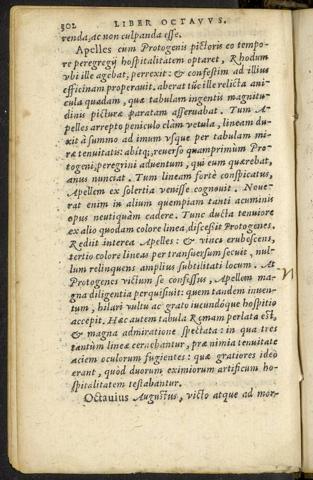 302 LIBER OCTAVVS.
renda, ac non culpanda esse.
Apelles cum Protogenis pictoris eo tempo-
re peregregij hospitalitatem optaret, Rhodum
vbi ille agebat, perrexit: & confestim ad illius
efficinam properauit. aberat tũc ille relicta ani-
cula quadam, quæ tabulam ingentis magnitu-
dinis picturæ paratam asseruabat. Tum A-
pelles arrepto peniculo clàm vetula, lineam du-
xit à summo ad imum vsque per tabulam mi-
ræ tenuitatis: abitq;, reuerso quamprimùm Pro-
togeni, peregrini aduentum, qui eum quærebat,
anus nunciat. Tum lineam fortè conspicatus,
Apellem ex solertia venisse cognouit. Noue-
rat enim in alium quempiam tanti acuminis
opus neutiquàm cadere. Tunc ducta tenuiore
ex alio quodam colore linea, discessit Protogenes.
Rediit interea Apelles: & vinci erubescens,
tertio colore lineas per transuersum secuit, nul-
lum relinquens amplius subtilitati locum. At
Protogenes victum se confessus, Apellem ma-
gna diligentia perquisiuit: quem tandem inuen-
tum, hilari vultu ac grato iucundóque hospitio
accepit. Hæc autem tabula Romam perlata est,
& magna admiratione spectata: in qua tres
tantùm lineæ cernebantur, præ nimia tenuitate
aciem oculorum fugientes: quæ gratiores ideò
erant, quòd duorum eximiorum artificum ho-
spitalitatem testabantur.
Octauius Augustus, victo atque ad mor-